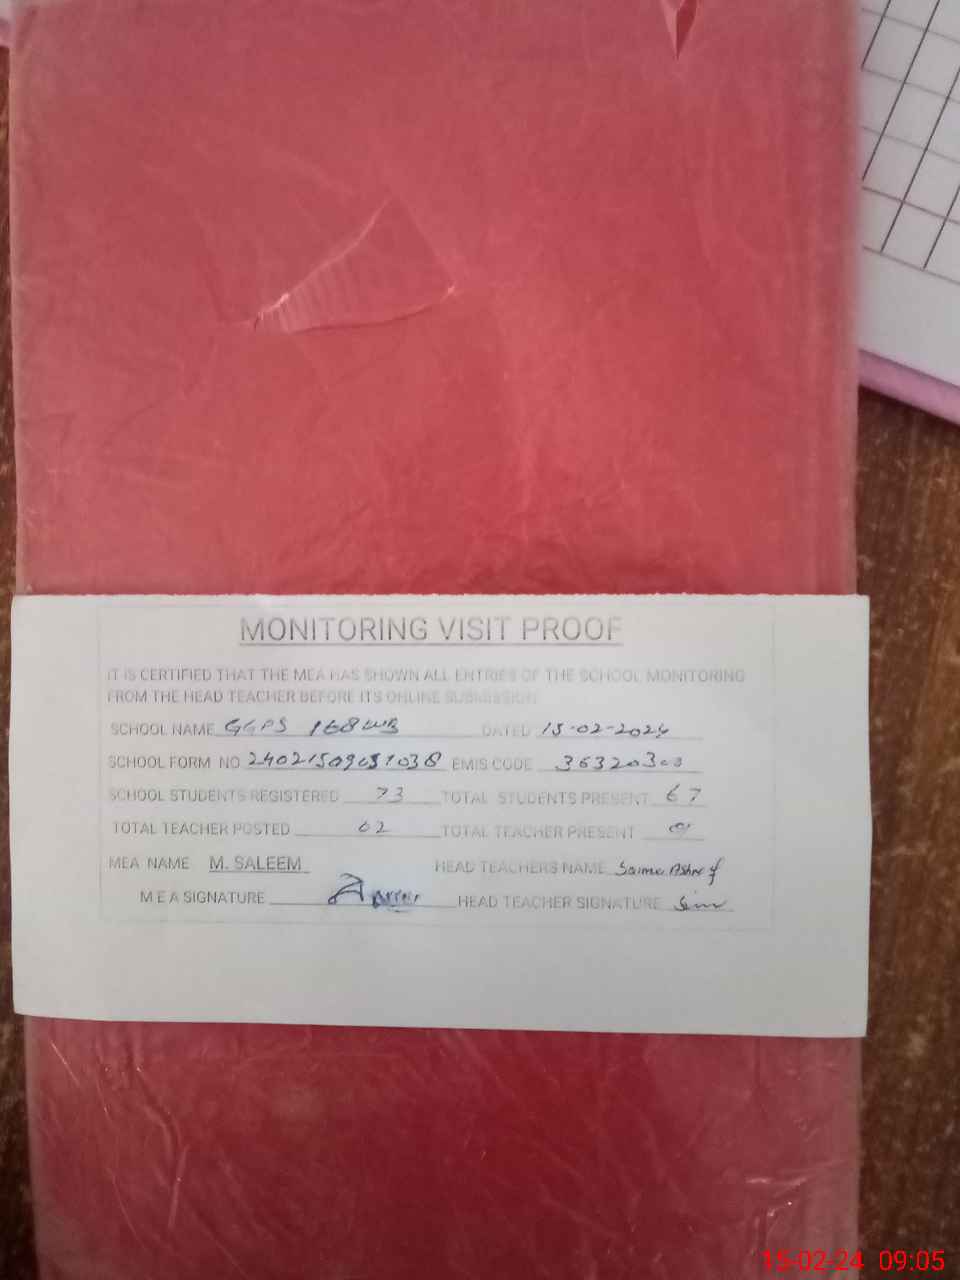 MONITORING VISIT PROOF
IT IS CERTIFIED THAT THE MEA HAS SHOWN ALL ENTRIES OF THE SCHOOL MONITORING
FROM THE HEAD TEACHER BEFORE ITS ONLINE SUBMISSION
SCHOOL NAME GGPS 168 WB DATED 15-02-2024
SCHOOL FORM NO EMIS CODE
SCHOOL STUDENTS REGISTERED 73 TOTAL STUDENTS PRESENT 67
TOTAL TEACHER POSTED 02 TOTAL TEACHER PRESENT
MEA NAME M. SALEEM HEAD TEACHERS NAME Saima Ashraf
M E A SIGNATURE HEAD TEACHER SIGNATURE
15-02-24 09:05